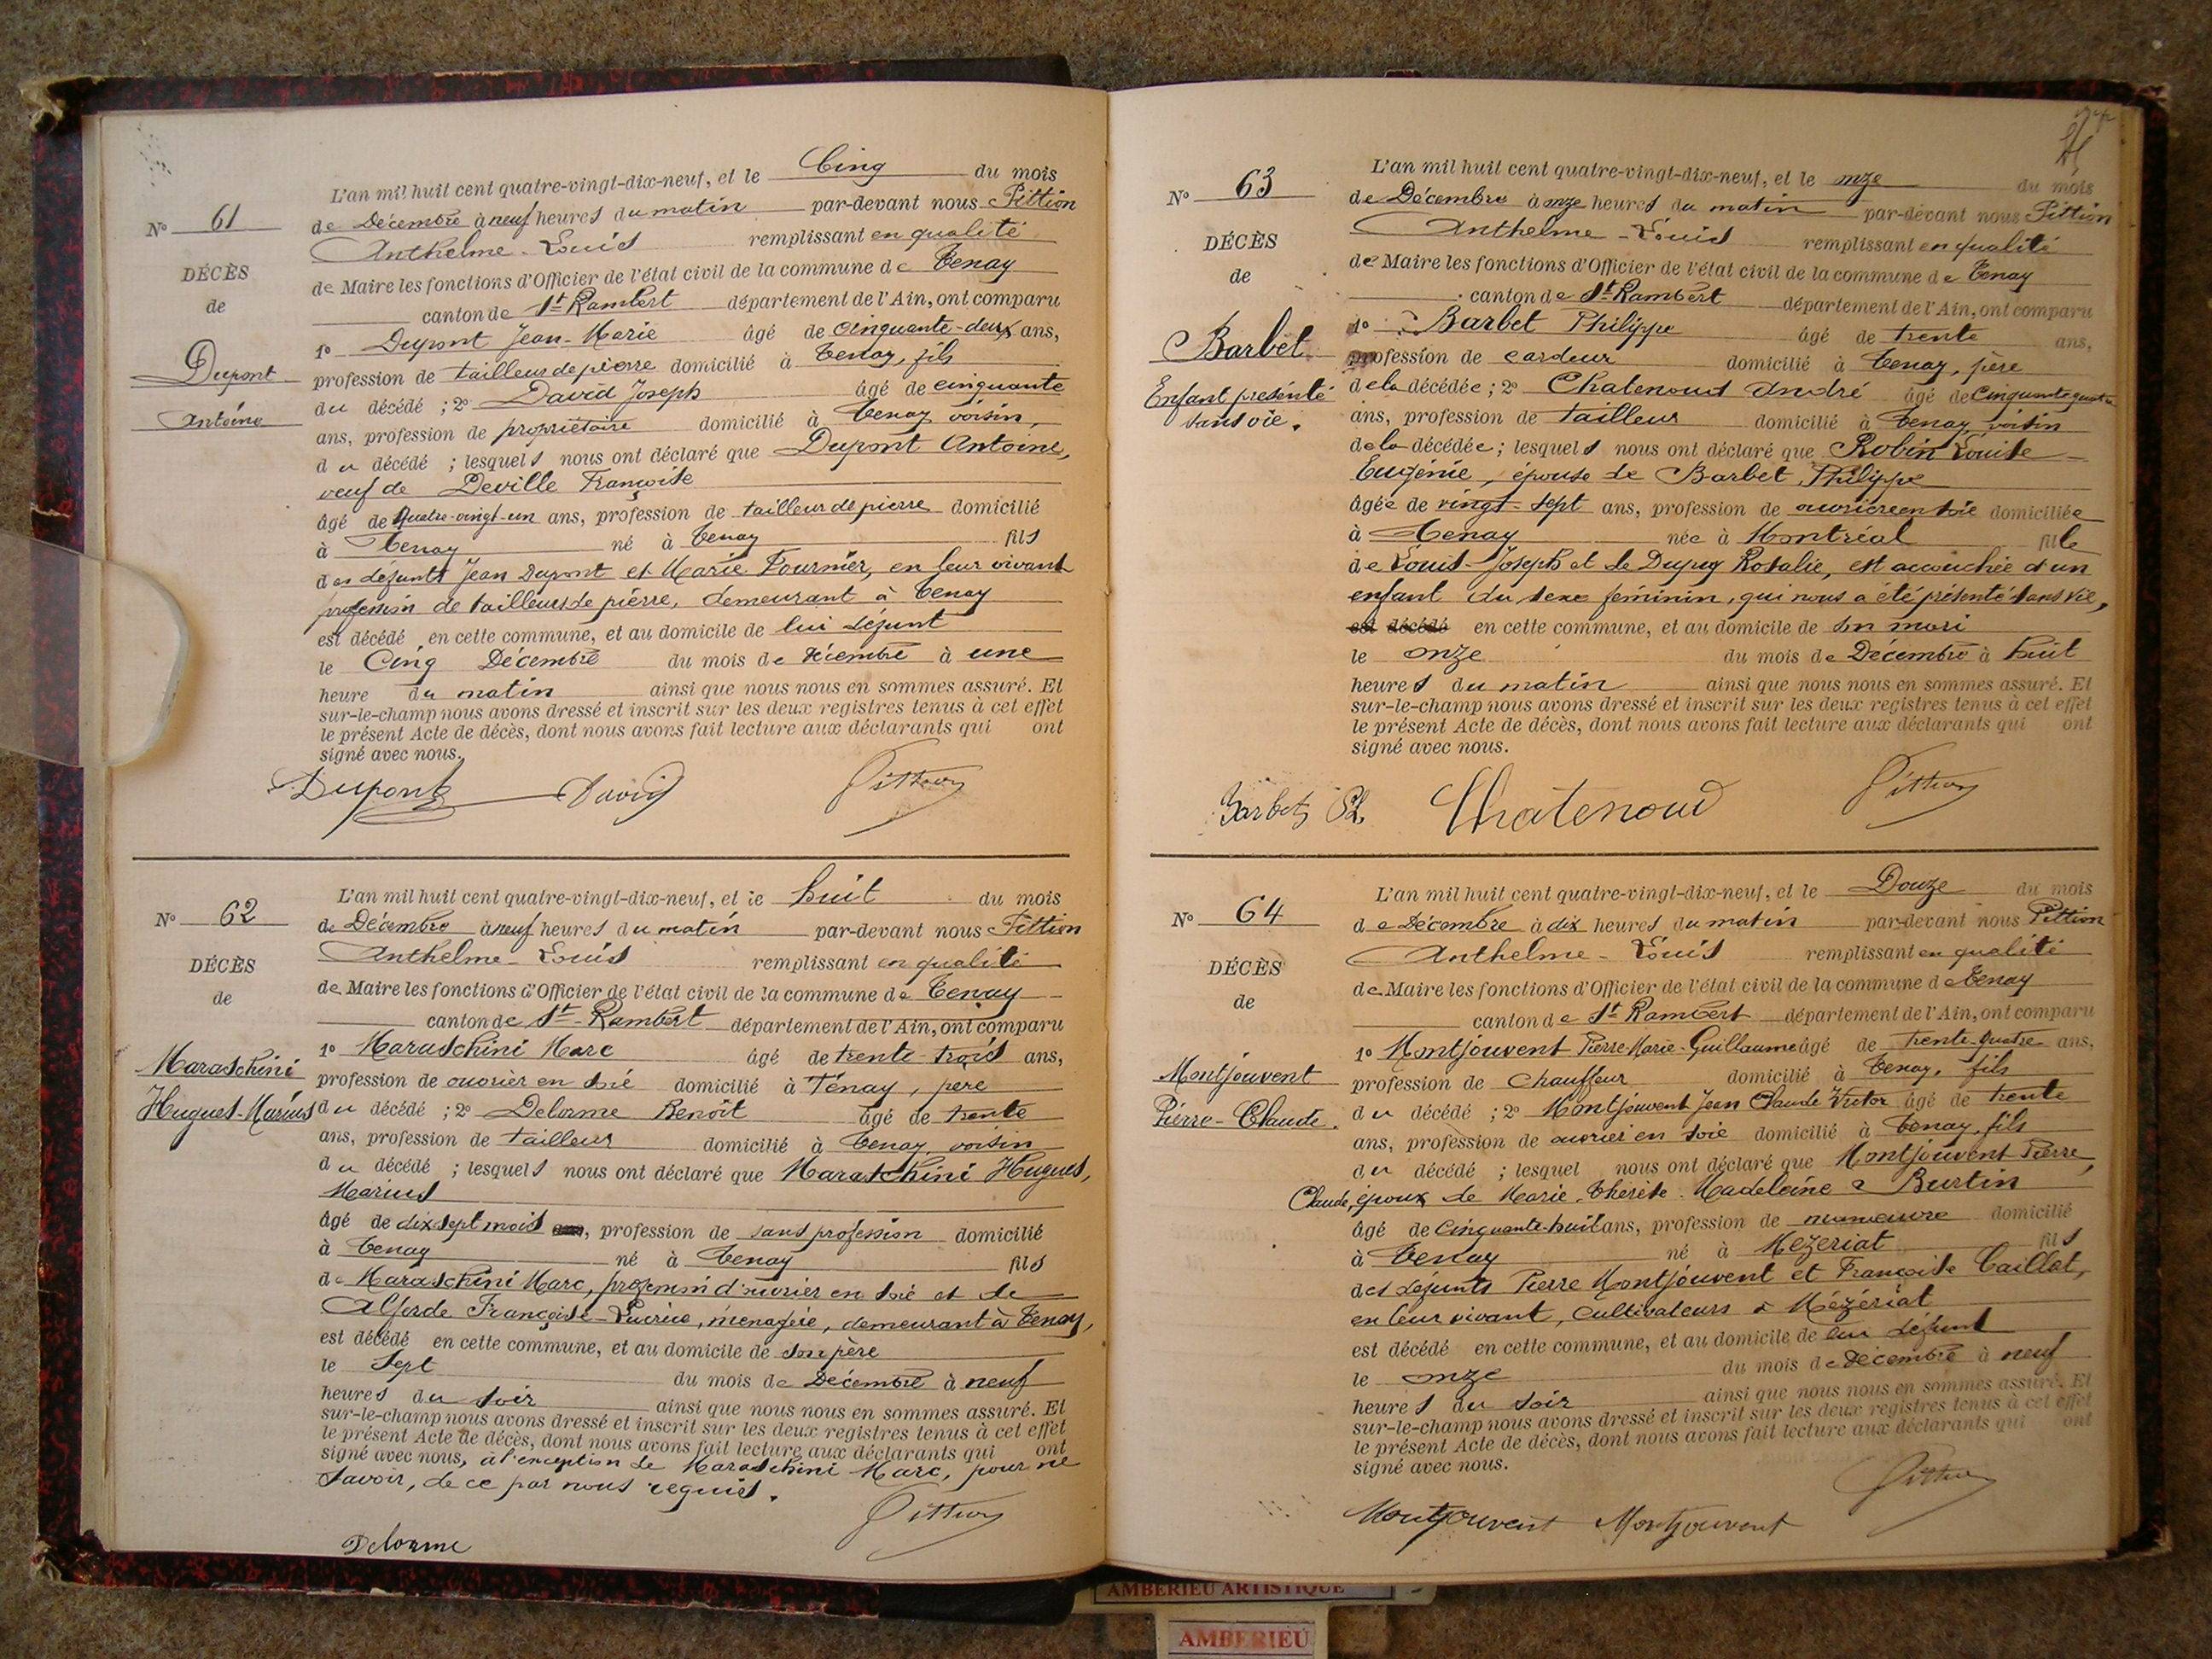 L'an mil huit cent quatre-vingt-dix-neuf, et le Cinq du mois
de Décembre à neuf heures du matin par-devant nous Pittion
Anthelme-Louis remplissant en qualité
de Maire les fonctions d'Officier de l'état civil de la commune de Tenay
canton de St-Rambert département de l'Ain, ont comparu
1º Dupont Jean-Marie âgé de cinquante-deux ans,
profession de tailleur de pierre domicilié à Tenay, fils
du décédé ; 2º David Joseph âgé de cinquante
ans, profession de propriétaire domicilié à Tenay voisin,
du décédé ; lesquels nous ont déclaré que Dupont Antoine,
veuf de Deville Françoise
âgé de Quatre-vingt-un ans, profession de tailleur de pierre domicilié
à Tenay né à Tenay fils
des défunts Jean Dupont et Marie Fournier, en leur vivant
profession de tailleurs de pierre, demeurant à Tenay
est décédé en cette commune, et au domicile de lui défunt
le Cinq Décembre du mois de Décembre à une
heure du matin ainsi que nous nous en sommes assuré. Et
sur-le-champ nous avons dressé et inscrit sur les deux registres tenus à cet effet
le présent Acte de décès, dont nous avons fait lecture aux déclarants qui ont
signé avec nous.
Nº 61
DÉCÈS
de
Dupont
Antoine
Dupont David Pittion
L'an mil huit cent quatre-vingt-dix-neuf, et le huit du mois
de Décembre à neuf heures du matin par-devant nous Pittion
Anthelme-Louis remplissant en qualité
de Maire les fonctions d'Officier de l'état civil de la commune de Tenay
canton de St-Rambert département de l'Ain, ont comparu
1º Maraschini Marc âgé de trente-trois ans,
profession de ouvrier en soie domicilié à Tenay, père
du décédé ; 2º Delorme Benoît âgé de trente
ans, profession de tailleur domicilié à Tenay, voisin
du décédé ; lesquels nous ont déclaré que Maraschini Hugues,
Marius
âgé de dix sept mois ans, profession de sans profession domicilié
à Tenay né à Tenay fils
de Maraschini Marc, profession d'ouvrier en soie et de
Françoise-Lucrèce, ménagère, demeurant à Tenay,
est décédé en cette commune, et au domicile de son père
le Sept du mois de Décembre à neuf
heures du soir ainsi que nous nous en sommes assuré. Et
sur-le-champ nous avons dressé et inscrit sur les deux registres tenus à cet effet
le présent Acte de décès, dont nous avons fait lecture aux déclarants qui ont
signé avec nous, à l'exception de Maraschini Marc, pour ne
savoir, de ce par nous requis.
Nº 62
DÉCÈS
de
Maraschini
Hugues-Marius
Pittion
Delorme
L'an mil huit cent quatre-vingt-dix-neuf, et le onze du mois
de Décembre à onze heures du matin par-devant nous Pittion
Anthelme-Louis remplissant en qualité
de Maire les fonctions d'Officier de l'état civil de la commune de Tenay
canton de St-Rambert département de l'Ain, ont comparu
1º Barbet Philippe âgé de trente ans,
profession de cardeur domicilié à Tenay, père
de la décédée ; 2º Chatenoud André âgé de Cinquante quatre
ans, profession de tailleur domicilié à Tenay, voisin
de la décédée ; lesquels nous ont déclaré que Robin Louise
Eugénie, épouse de Barbet Philippe
âgée de vingt-sept ans, profession de ouvrière en soie domiciliée
à Tenay née à Montréal fille
de Louis-Joseph et de Dupuy Rosalie, est accouchée d'un
enfant du sexe féminin, qui nous a été présenté sans vie,
est décédé en cette commune, et au domicile de son mari
le onze du mois de Décembre à huit
heures du matin ainsi que nous nous en sommes assuré. Et
sur-le-champ nous avons dressé et inscrit sur les deux registres tenus à cet effet
le présent Acte de décès, dont nous avons fait lecture aux déclarants qui ont
signé avec nous.
Nº 63
DÉCÈS
de
Barbet
Enfant présenté
sans vie.
Barbet Ph. Chatenoud Pittion
L'an mil huit cent quatre-vingt-dix-neuf, et le Douze du mois
de Décembre à dix heures du matin par-devant nous Pittion
Anthelme-Louis remplissant en qualité
de Maire les fonctions d'Officier de l'état civil de la commune de Tenay
canton de St-Rambert département de l'Ain, ont comparu
1º Montjouvent Pierre-Marie-Guillaume âgé de trente-quatre ans,
profession de Chauffeur domicilié à Tenay, fils
du décédé ; 2º Montjouvent Jean Claude Victor âgé de trente
ans, profession de ouvrier en soie domicilié à Tenay, fils
du décédé ; lesquel nous ont déclaré que Montjouvent Pierre,
Claude, époux de Marie-Thérèse-Madeleine Burtin
âgé de cinquante-huit ans, profession de domicilié
à Tenay né à Mézeriat fils
des défunts Pierre Montjouvent et Françoise Caillat,
en leur vivant, cultivateurs à Mézériat
est décédé en cette commune, et au domicile de lui défunt
le onze du mois de Décembre à neuf
heures du soir ainsi que nous nous en sommes assuré. Et
sur-le-champ nous avons dressé et inscrit sur les deux registres tenus à cet effet
le présent Acte de décès, dont nous avons fait lecture aux déclarants qui ont
signé avec nous.
Nº 64
DÉCÈS
de
Montjouvent
Pierre-Claude.
Pittion
Montjouvent Montjouvent
AMBERIEU ARTISTIQUE
AMBERIEU